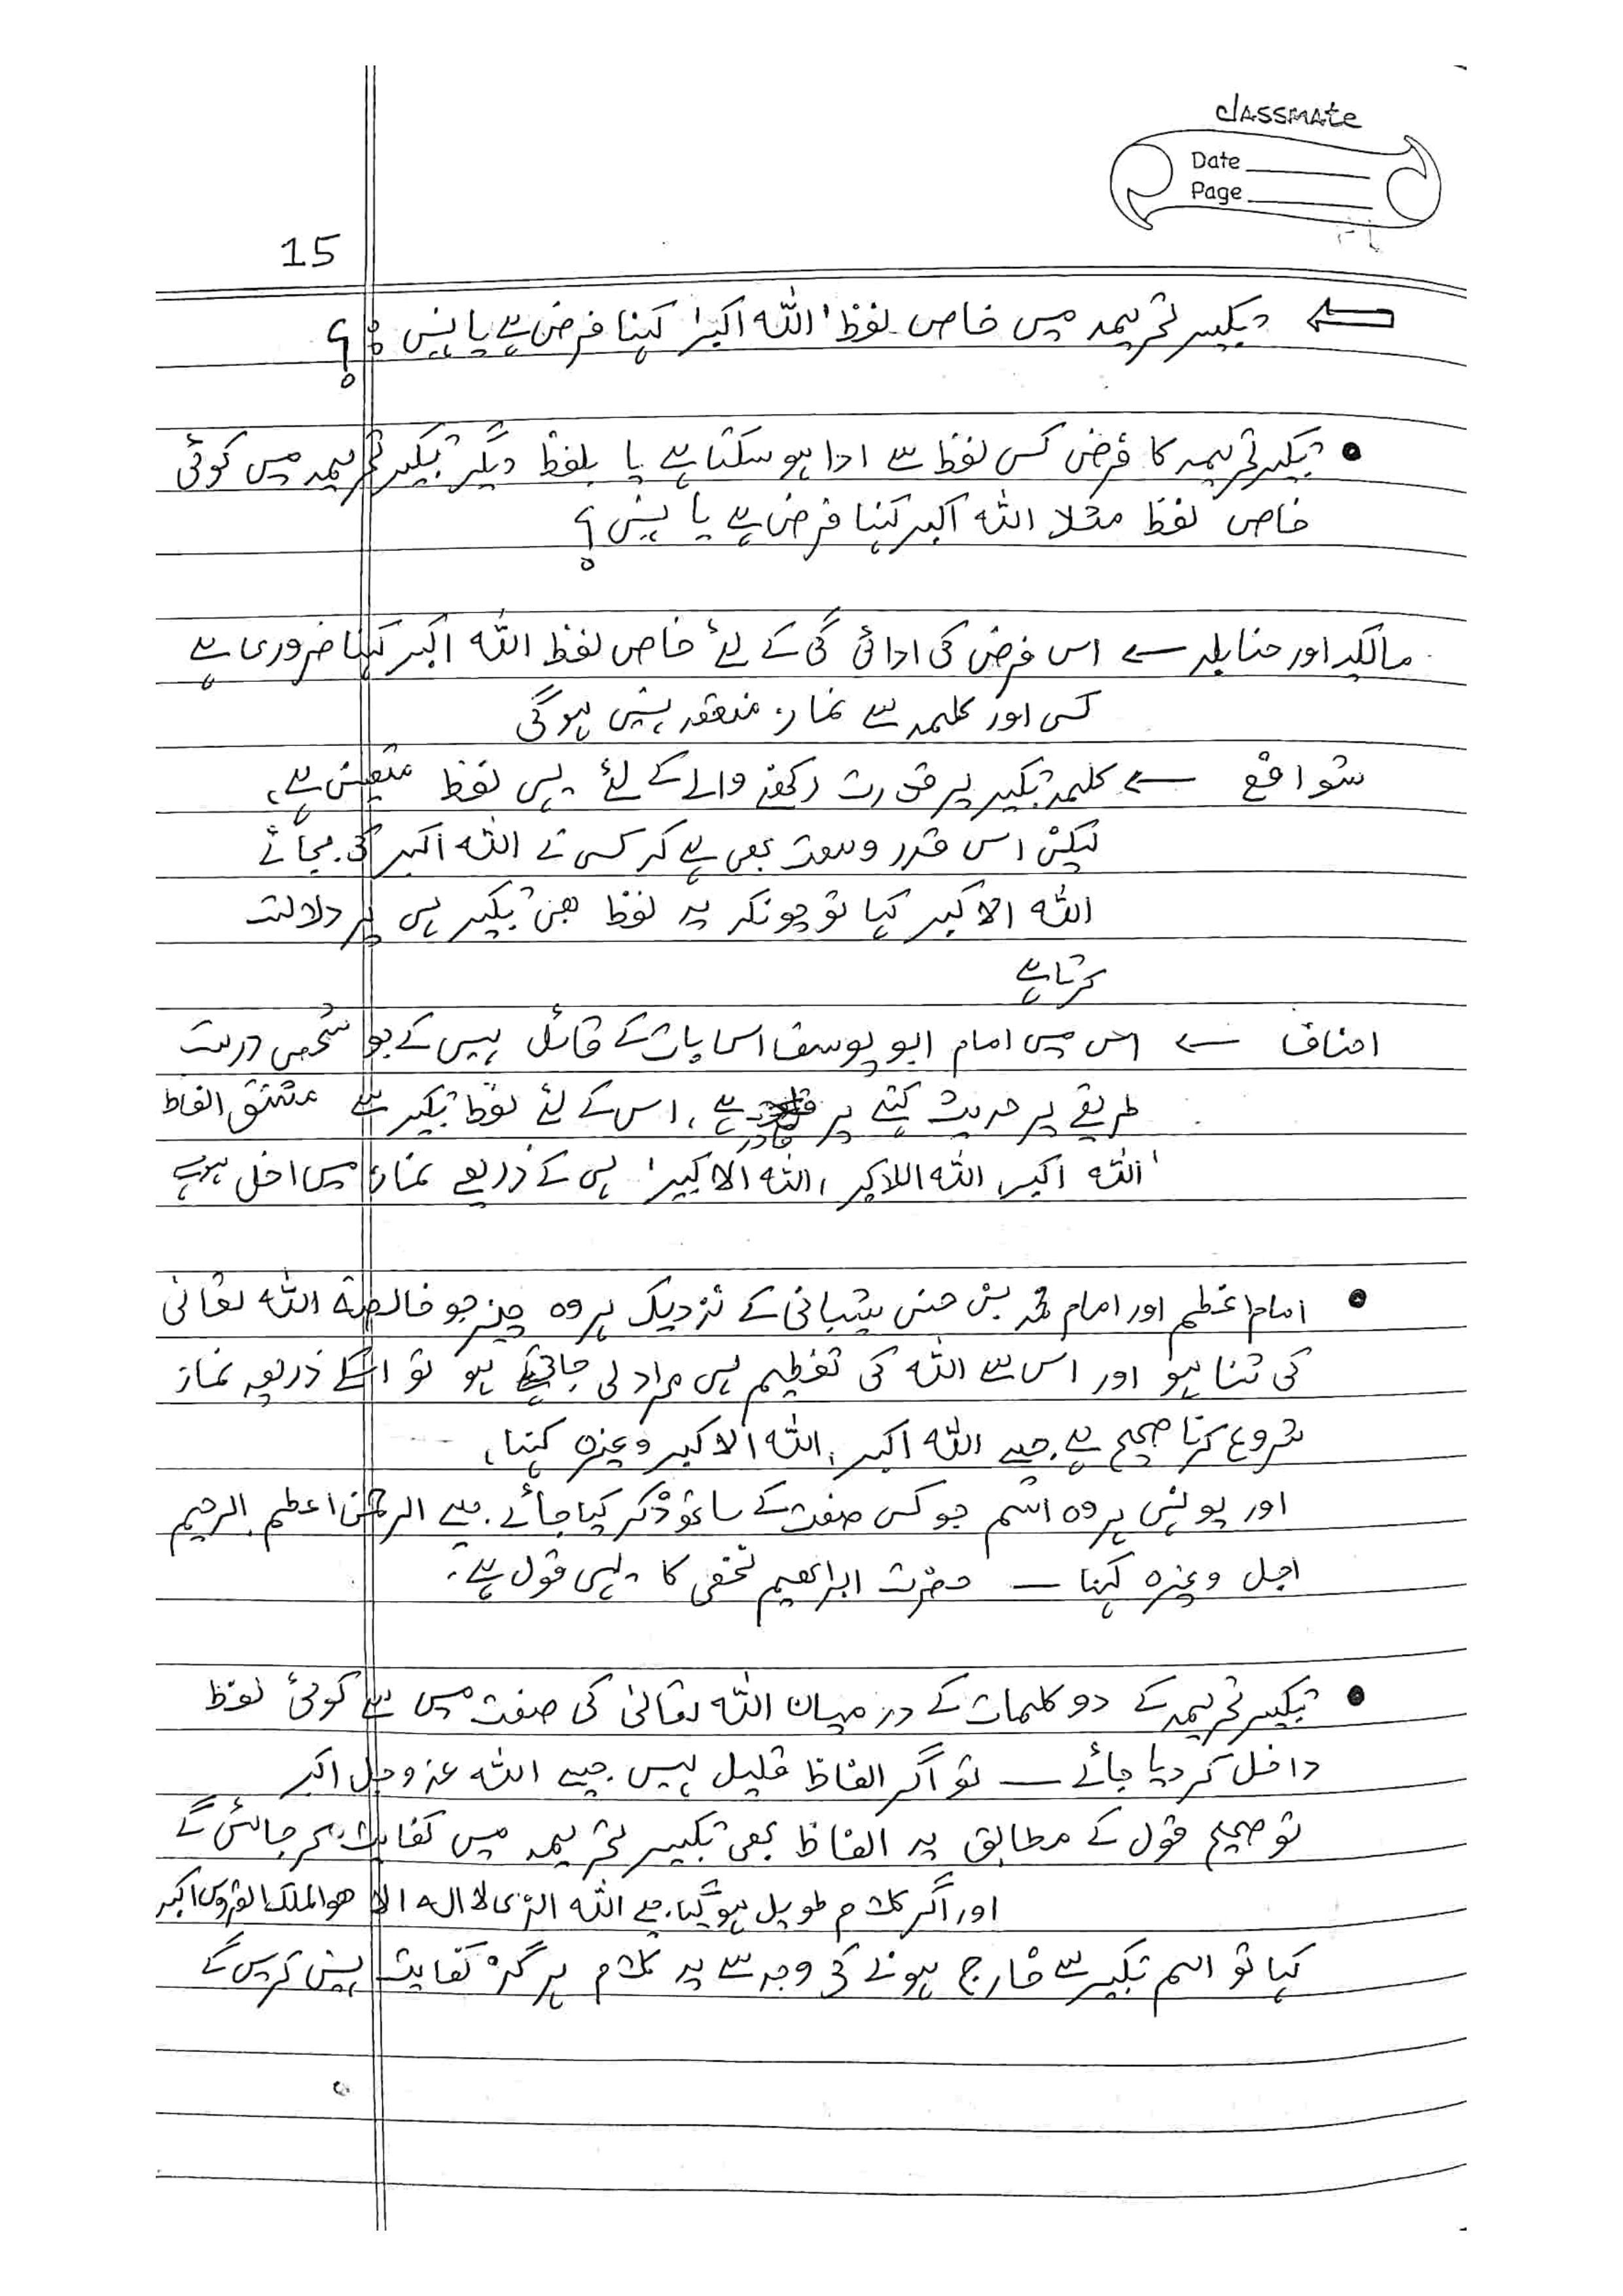 classmate
Date
Page
15
تکبیر تحریمہ میں خاص لفظ 'اللہ اکبر' کہنا فرض ہے یا نہیں :؟
• تکبیر تحریمہ کا فرض کس لفظ سے ادا ہو سکتا ہے یا بلفظ دیگر تکبیر تحریمہ میں کوئی
خاص لفظ مثلا اللہ اکبر کہنا فرض ہے یا نہیں ؟
مالکیہ اور حنابلہ ← اس فرض کی ادائی گی کے لئے خاص لفظ اللہ اکبر کہنا ضروری ہے
کسی اور کلمہ سے نماز منعقد نہیں ہوگی
شوافع ← کلمہ تکبیر پر قدرت رکھنے والے کے لئے یہی لفظ متعین ہے،
لیکن اس قدر وسعت بھی ہے کہ کسی نے اللہ اکبر کی بجائے
اللہ الاکبر کہا تو چونکہ یہ لفظ بھی تکبیر ہی پر دلالت
کرتا ہے
احناف ← اس میں امام ابو یوسف اس بات کے قائل ہیں کے جو شخص درست
طریقے پر حدیث کہنے پر قادر ہے، اس کے لئے لفظ تکبیر سے مشتق الفاظ
'اللہ اکبر، اللہ الاکبر، اللہ الاکبیر' ہی کے ذریعے نماز میں اخل ہو ہے
• امام اعظم اور امام محمد بن حسن شیبانی کے نزدیک ہر وہ چیز جو خالصۃ اللہ تعالی
کی ثنا ہو اور اس سے اللہ کی تعظیم ہی مراد لی جاتی ہو تو اسکے ذریعہ نماز
شروع کرنا صحیح ہے۔ جیسے اللہ اکبر، اللہ الاکبر وغیرہ کہنا،
اور یونہی ہر وہ اسم جو کسی صفت کے ساتھ ذکر کیا جائے۔ جیسے الرحمن اعظم، الرحیم
اجل وغیرہ کہنا — حضرت ابراھیم نخعی کا یہی قول ہے۔
• تکبیر تحریمہ کے دو کلمات کے درمیان اللہ تعالیٰ کی صفت میں سے کوئی لفظ
داخل کر دیا جائے — تو اگر الفاظ قلیل ہیں۔ جیسے اللہ عز و جل اکبر
تو صحیح قول کے مطابق یہ الفاظ بھی تکبیر تحریمہ میں کفایت کر جائیں گے
اور اگر کلام طویل ہو گیا، جیسے اللہ الذی لا الہ الا ھو الملک القدوس اکبر
کہا تو اسم تکبیر سے خارج ہونے کی وجہ سے یہ کلام ہر گز کفایت نہیں کریں گے